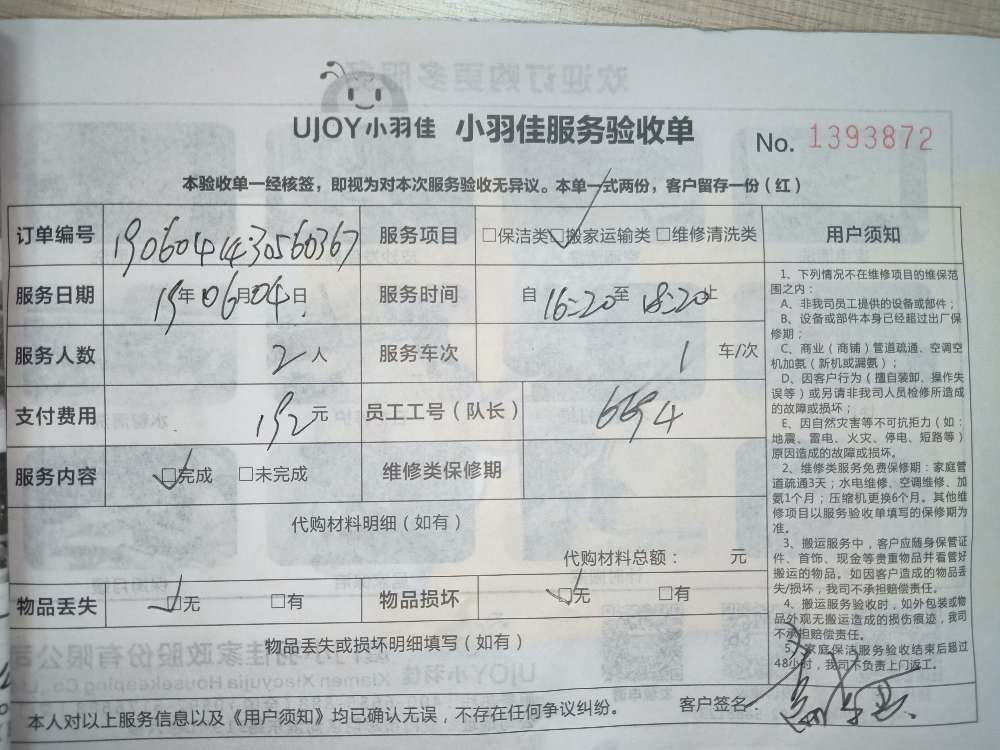 UJOY小羽佳 小羽佳服务验收单 No. 1393872
本验收单一经核签，即视为对本次服务验收无异议。本单一式两份，客户留存一份（红）
订单编号 19060414430560367 服务项目 □保洁类 □搬家运输类 □维修清洗类
服务日期 19年06月04日 服务时间 自16:20至18:20止
服务人数 2人 服务车次 1 车/次
支付费用 192元 员工工号（队长） 6694
服务内容 □完成 □未完成 维修类保修期
代购材料明细（如有）
代购材料总额： 元
物品丢失 □无 □有 物品损坏 □无 □有
物品丢失或损坏明细填写（如有）
本人对以上服务信息以及《用户须知》均已确认无误，不存在任何争议纠纷。 客户签名：
用户须知
1、下列情况不在维修项目的维保范
围之内：
A、非我司员工提供的设备或部件；
B、设备或部件本身已经超过出厂保
修期；
C、商业（商铺）管道疏通、空调空
机加氨（新机或漏氨）；
D、因客户行为（擅自装卸、操作失
误等）或另请非我司人员检修所造成
的故障或损坏；
E、因自然灾害等不可抗拒力（如：
地震、雷电、火灾、停电、短路等）
原因造成的故障或损坏。
2、维修类服务免费保修期：家庭管
道疏通3天；水电维修、空调维修、加
氨1个月；压缩机更换6个月。其他维
修项目以服务验收单填写的保修期为
准。
3、搬运服务中，客户应随身保管证
件、首饰、现金等贵重物品并看管好
搬运的物品。如因客户造成的物品丢
失/损坏，我司不承担赔偿责任。
4、搬运服务验收时，如外包装或物
品外观无搬运造成的损伤痕迹，我司
不承担赔偿责任。
5、家庭保洁服务验收结束后超过
48小时，我司不负责上门返工。